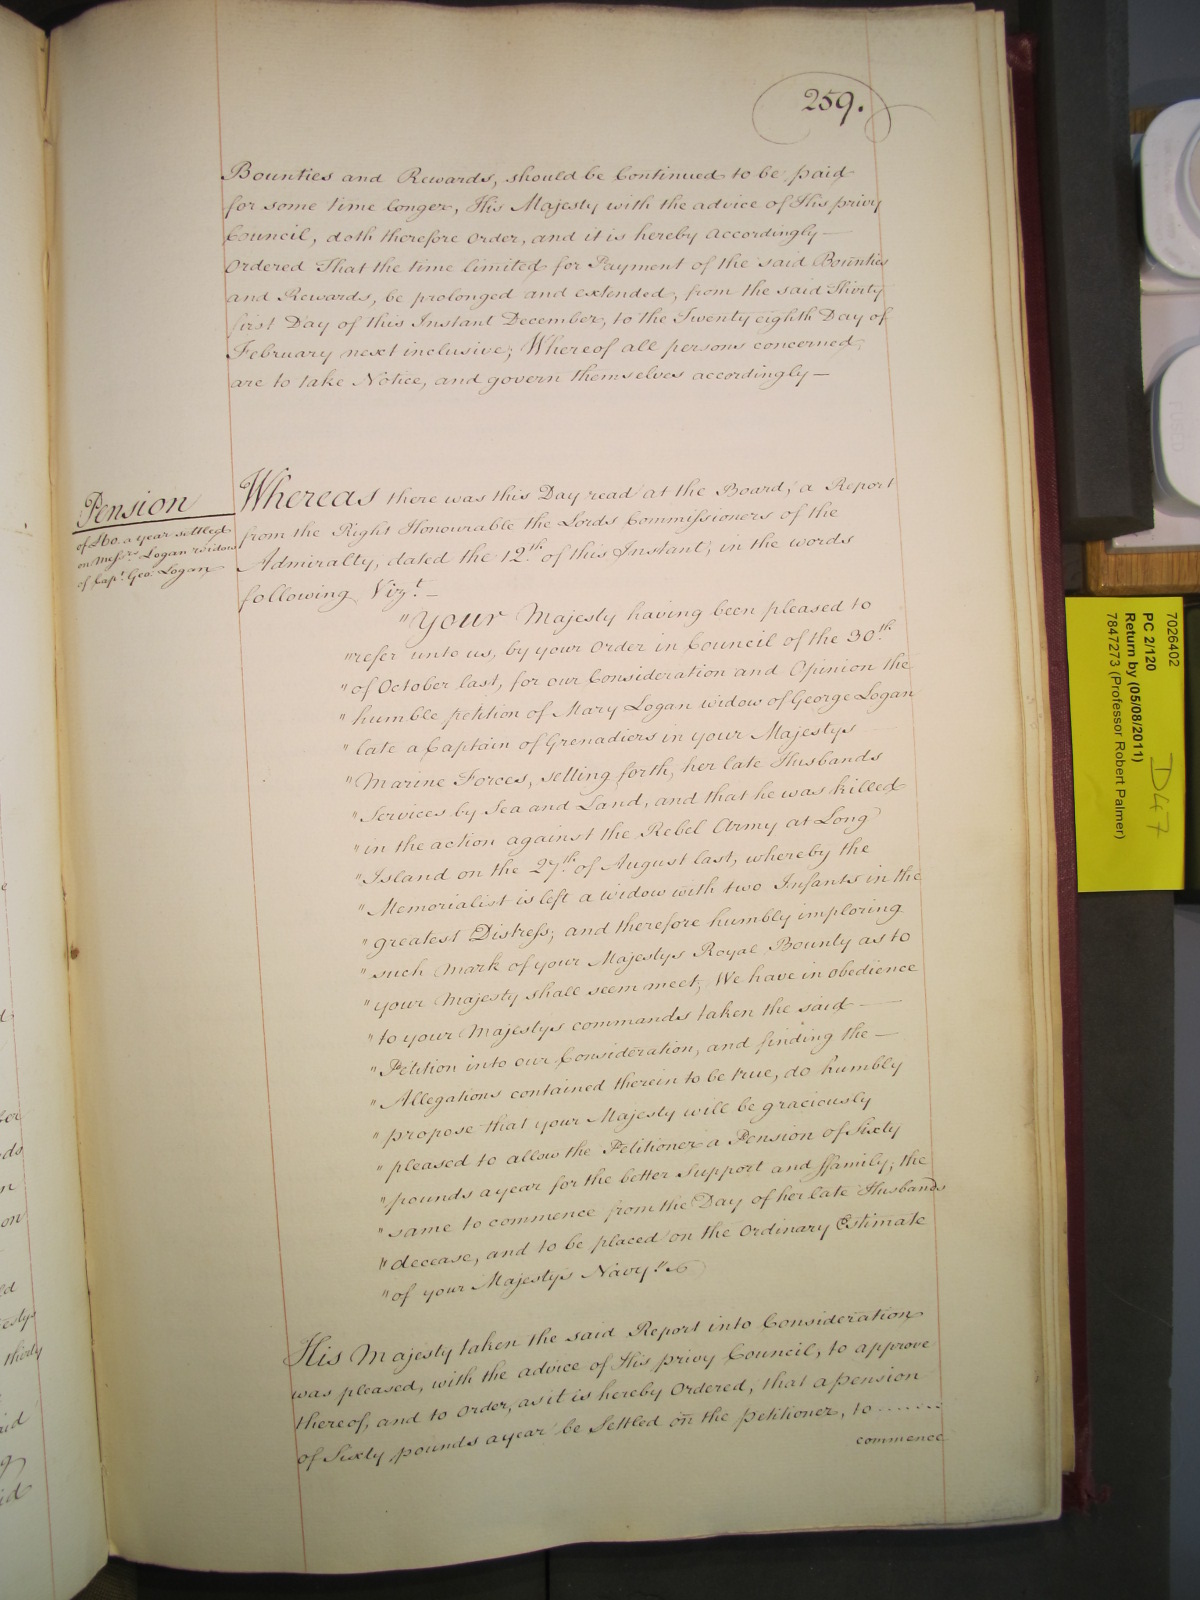 259.
Bounties and Rewards, should be Continued to be paid
for some time longer, His Majesty with the advice of His privy
Council, doth therefore order, and it is hereby accordingly—
Ordered That the time limited for Payment of the said Bounties
and Rewards, be prolonged and extended, from the said Thirty
first Day of this Instant December, to the Twenty eighth Day of
February next inclusive; Whereof all persons concerned,
are to take Notice, and govern themselves accordingly—
Pension
of £60. a year settled
on Messrs. Logan widow
of Capt. Geo. Logan
Whereas there was this Day read at the Board, a Report
from the Right Honourable the Lords Commissioners of the
Admiralty, dated the 12th. of this Instant, in the words
following Vizt.—
"Your Majesty having been pleased to
"refer unto us, by your Order in Council of the 30th.
"of October last, for our Consideration and Opinion the
"humble petition of Mary Logan widow of George Logan
"late a Captain of Grenadiers in your Majestys
"Marine Forces, setting forth, her late Husbands
"Services by Sea and Land, and that he was killed
"in the action against the Rebel Army at Long
"Island on the 27th. of August last, whereby the
"Memorialist is left a widow with two Infants in the
"greatest Distress; and therefore humbly imploring
"such Mark of your Majestys Royal Bounty as to
"your Majesty shall seem meet; We have in obedience
"to your Majestys commands taken the said—
"Petition into our Consideration, and finding the—
"Allegations contained therein to be true, do humbly
"propose that your Majesty will be graciously
"pleased to allow the Petitioner a Pension of Sixty
"pounds a year for the better Support and ffamily; the
"same to commence from the Day of her late Husbands
"decease, and to be placed on the Ordinary Estimate
"of your Majesty's Navy."
His Majesty taken the said Report into Consideration
was pleased, with the advice of His privy Council, to approve
thereof, and to Order, as it is hereby Ordered, that a pension
of Sixty pounds a year be Settled on the petitioner, to .......
commence
7026402
PC 2/120
Return by (05/08/2011)
7847273 (Professor Robert Palmer)
D47